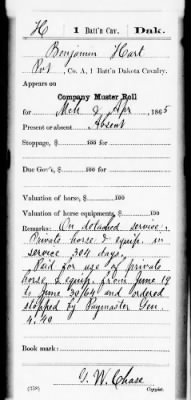 H 1 Batt'n Cav. Dak.
Benjamin Hart
Pvt, Co. A, 1 Batt'n Dakota Cavalry.
Appears on
Company Muster Roll
for Mch & Apr, 1865
Present or absent Absent
Stoppage, $ 100 for
Due Gov't, $ 100 for
Valuation of horse, $ 100
Valuation of horse equipments, $ 100
Remarks: On detached service.
Private horse & equip. in
service 304 days.
Paid for use of private
horse & equip. from June 19
to June 30/64 and ordered
stopped by Paymaster Gen.
4.40
Book mark:
G. W. Chase
(358) Copyist.